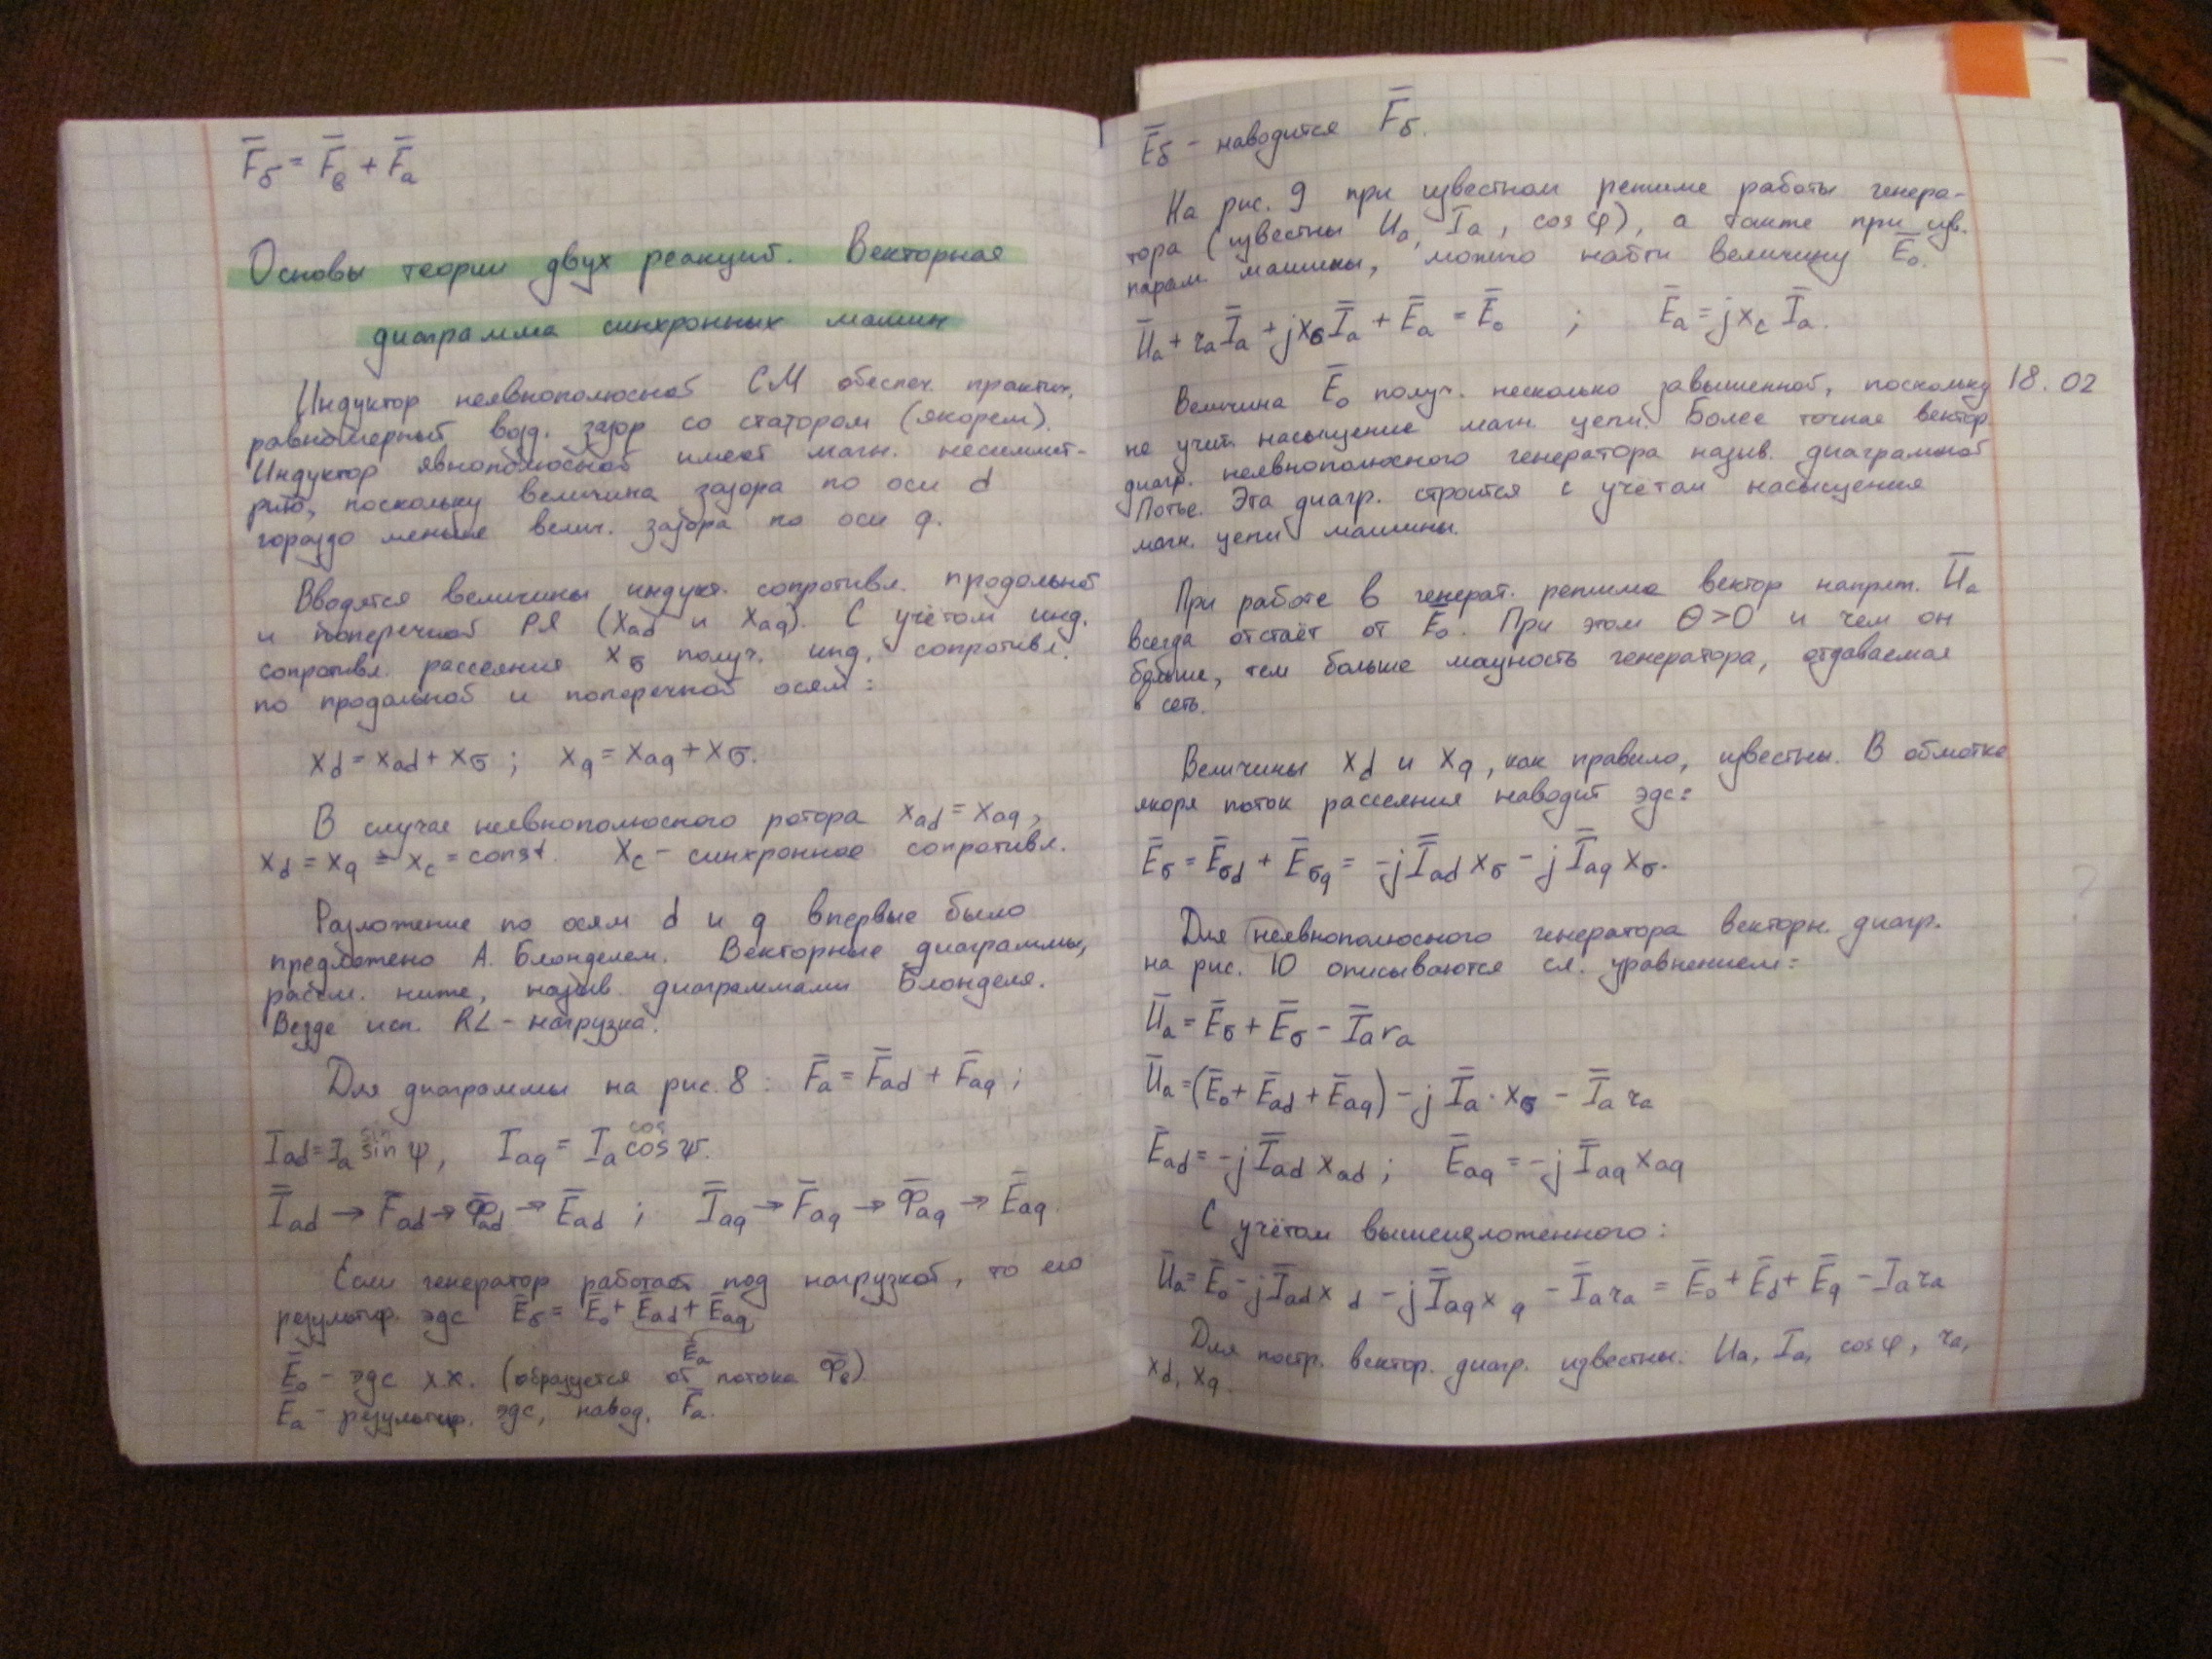 F̄δ = F̄в + F̄a
Основы теории двух реакций. Векторная
диаграмма синхронных машин
Индуктор неявнополюсной СМ обеспеч. практич.
равномерный возд. зазор со статором (якорем).
Индуктор явнополюсной имеет магн. несиммет-
рию, поскольку величина зазора по оси d
гораздо меньше велич. зазора по оси q.
Вводятся величины индукт. сопротивл. продольной
и поперечной РЯ (Xad и Xaq). С учётом инд.
сопротивл. рассеяния Xσ получ. инд. сопротивл.
по продольной и поперечной осям:
Xd = Xad + Xσ ; Xq = Xaq + Xσ.
В случае неявнополюсного ротора Xad = Xaq,
Xd = Xq = Xc = const. Xc – синхронное сопротивл.
Разложение по осям d и q впервые было
предложено А. Блонделем. Векторные диаграммы,
рассм. ниже, назыв. диаграммами Блонделя.
Везде исп. RL – нагрузка.
Для диаграммы на рис. 8 : F̄a = F̄ad + F̄aq ;
Iad = Ia sin ψ, Iaq = Ia cos ψ.
Īad → F̄ad → Φ̄ad → Ēad ; Īaq → F̄aq → Φ̄aq → Ēaq
Если генератор работает под нагрузкой, то его
результир. эдс Ēδ = Ē₀ + Ēad + Ēaq
Ēa
Ē₀ – эдс хх. (образуется от потока Φ̄в)
Ēa – результир. эдс, навод. F̄a.
Ēδ – наводится F̄δ.
На рис. 9 при известном режиме работы генера-
тора (известны Ua, Ia, cos φ), а также при изв.
парам. машины, можно найти величину Ē₀.
Ūa + raĪa + jxσĪa + Ēa = Ē₀ ; Ēa = jxc Īa.
Величина Ē₀ получ. несколько завышенной, поскольку 18.02
не учит. насыщение магн. цепи. Более точная вектор.
диагр. неявнополюсного генератора назыв. диаграммой
Потье. Эта диагр. строится с учётом насыщения
магн. цепи машины.
При работе в генерат. режиме вектор напряж. Ūa
всегда отстаёт от Ē₀. При этом Θ>0 и чем он
больше, тем больше мощность генератора, отдаваемая
в сеть.
Величины Xd и Xq, как правило, известны. В обмотке
якоря поток рассеяния наводит эдс:
Ēσ = Ēσd + Ēσq = -jĪad xσ - jĪaq xσ.
Для неявнополюсного генератора векторн. диагр.
на рис. 10 описываются сл. уравнением:
Ūa = Ēδ + Ēσ - Īa ra
Ūa = (Ē₀ + Ēad + Ēaq) - jĪa · xσ - Īa ra
Ēad = -jĪad xad ; Ēaq = -jĪaq xaq
С учётом вышеизложенного:
Ūa = Ē₀ - jĪad xd - jĪaq xq - Īa ra = Ē₀ + Ēd + Ēq - Īa ra
Для постр. вектор. диагр. известны: Ua, Ia, cos φ, ra,
xd, xq.